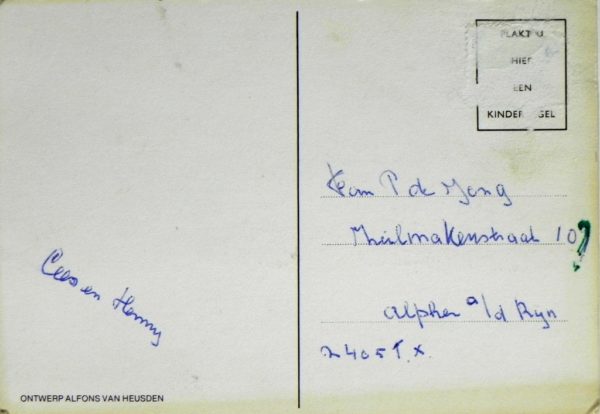 PLAKT U
HIER
EEN
KINDER GEL
Fam P de Jong
Zeilmakerstraat 10
Alphen a/d Ryn
2405 T.X.
Cees en Henny
ONTWERP ALFONS VAN HEUSDEN